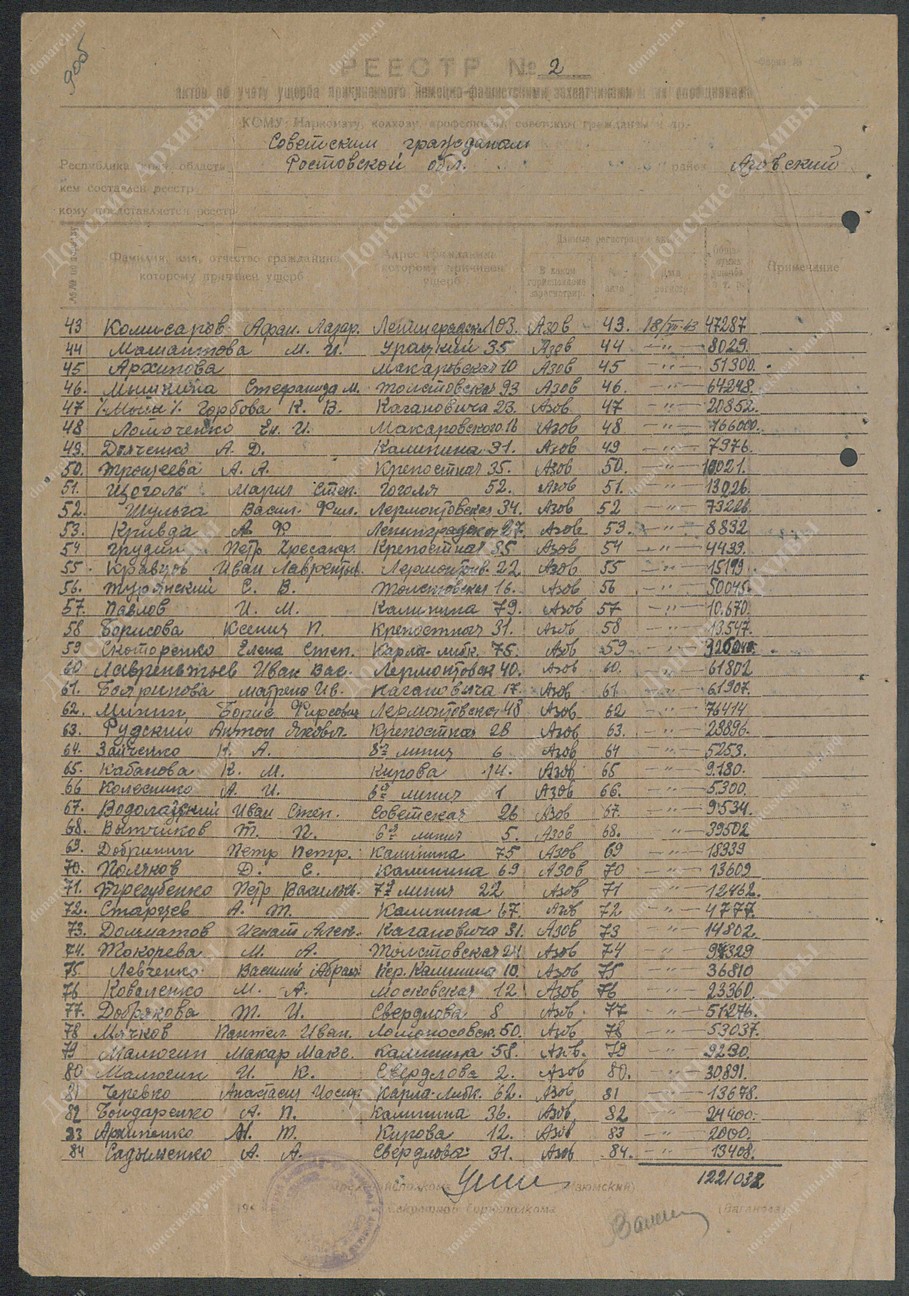 РЕЕСТР № 2
актов по учету ущерба причиненного немецко-фашистскими захватчиками и их пособниками
КОМУ:
Советским гражданам
Республика, край, область Ростовской обл. район Азовский
кем составлен реестр
кому представляется реестр
Фамилия, имя, отчество гражданина которому причинен ущерб
Адрес гражданина которому причинен ущерб
Данные регистрации акта
Примечание
43 Комисаров Афан. Лазар. Ленинградская 103. Азов 43. 18/VIII-43 47287
44 М. И. Урицкий 35 Азов 44 —"— 8029.
45 Архипова Макаровская 10 Азов 45 —"— 51300.
46. Мышкина Степанида М. Толстовская 93 Азов 46. —"— 64248.
47 Горбова К. В. Кагановича 23. Азов 47 —"— 20852.
48 Ломаченко Ел. И. Макаровского 16 Азов 48 —"— 166000.
49. Дяченко А. Д. Калинина 31. Азов 49 —"— 7976.
50. А. А. Крепостная 35. Азов 50. —"— 10021.
51. Щеголь Мария Степ. Гоголя 52. Азов 51. —"— 13026.
52. Шульга Васил. Фил. Лермонтовская 34. Азов 52 —"— 73226.
53. Кривда А. Ф. Ленинградская 27. Азов 53. —"— 8832
54 Грудин Петр Хрисанф. Крепостная 85 Азов 54 —"— 4499.
55. Кравцов Иван Лаврентьев. Лермонтов. 22 Азов 55 —"— 15199.
56. Турянский Е. В. Толстовская 16. Азов 56 —"— 50045.
57. Павлов И. М. Калинина 79. Азов 57 —"— 10.670.
58 Борисова Ксения П. Крепостная 31. Азов 58 —"— 13547.
59 Скоторенко Елена Степ. Карла-либк. 75. Азов 59
60 Лаврентьев Иван Вас. Лермонтовск 40. Азов 60. —"— 61802
61. Бояринова Матрена Ив. Кагановича 17. Азов 61 —"— 61907.
62. Минин Борис Фирсович Лермонтовская 48 Азов 62 —"— 76414
63. Рудский Антон Яковл. Крепостная 28 Азов 63. —"— 23896.
64. Зайченко К. А. 8я линия 6 Азов 64 —"— 5253.
65. Кабанова К. М. Кирова 14. Азов 65 —"— 9.180.
66 Колесник А. И. 6я линия 1 Азов 66. —"— 5.300.
67. Водолажский Иван Степ. Советская 26 Азов 67. —"— 9534.
68. Т. П. 6я линия 5. Азов 68. —"— 39502
69. Добринин Петр Петр. Калинина 75 Азов 69 —"— 18339
70. Поляков Д. С. Калинина 69 Азов 70 —"— 13609
71. Трегубенко Петр Васильев. 7я линия 22 Азов 71 —"— 12462.
72. Старцев А. Т. Калинина 67. Азов 72 —"— 4777.
73. Долматов Игнат Алек. Кагановича 31. Азов 73 —"— 14802.
74. Токорева М. А. Толстовская 24 Азов 74 —"— 97329
75 Левченко Василий Абрам. Пер. Калинина 10. Азов 75 —"— 36810
76 Коваленко М. А. Московская 12 Азов 76 —"— 23360.
77. Добрякова Т. И. Свердлова 8 Азов 77 —"— 51276.
78 Мячков Пантел. Иван. Ломоносовск. 50. Азов 78 —"— 53037.
79 Малюгин Макар Макс. Калинина 58. Азов. 79 —"— 9290.
80 Малюгин И. К. Свердлова 2. Азов 80. —"— 30891.
81 Черевко Анастасия Иосиф. Карла-Либк. 62. Азов 81 —"— 13678.
82 Бондаренко А. П. Калинина 36. Азов 82 —"— 24400.
83 Архипенко М. Т. Кирова 12. Азов 83 —"— 2000.
84 Садыменко А. А. Свердлова 31. Азов 84. —"— 13408.
1221032
Секретарь Горисполкома
Донские Архивы
donarch.ru